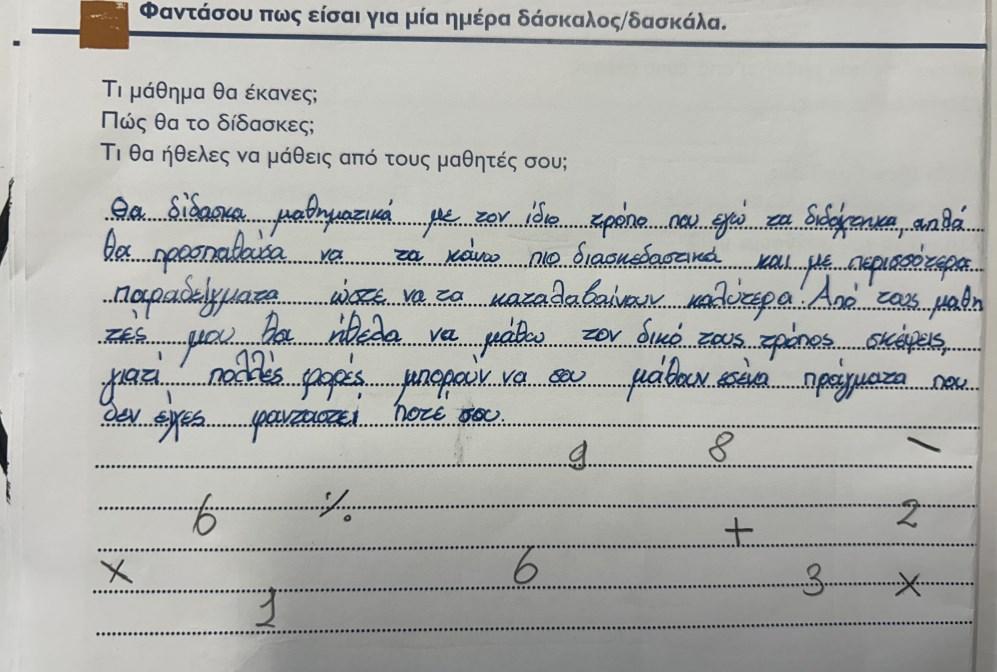 Φαντάσου πως είσαι για μία ημέρα δάσκαλος/δασκάλα.
Τι μάθημα θα έκανες;
Πώς θα το δίδασκες;
Τι θα ήθελες να μάθεις από τους μαθητές σου;
Θα δίδασκα μαθηματικά με τον ίδιο τρόπο που εγώ τα διδάχτηκα, απλά
θα προσπαθούσα να τα κάνω πιο διασκεδαστικά και με περισσότερα
παραδείγματα ώστε να τα καταλαβαίνουν καλύτερα. Από τους μαθη
τές μου θα ήθελα να μάθω τον δικό τους τρόπος σκέψεις,
γιατί πολλές φορές μπορούν να σου μάθουν εσένα πράγματα που
δεν είχες φανταστεί ποτέ σου.
9 8 -
6 % + 2
x 6 3 x
1